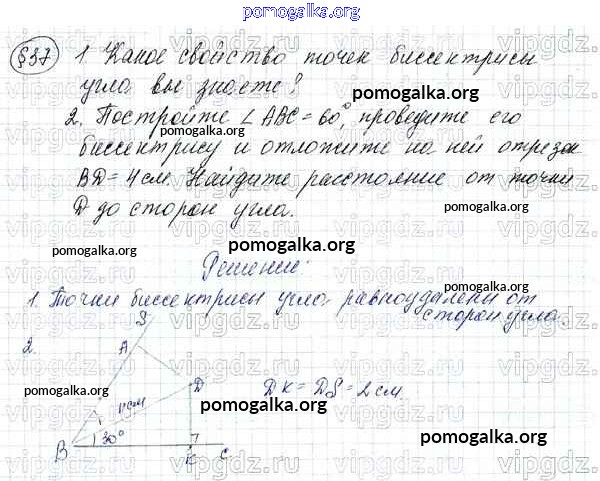 pomogalka.org
§37 1. Какое свойство точек биссектрисы
угла вы знаете?
pomogalka.org
2. Постройте ∠ABC = 60°, проведите его
биссектрису и отложите на ней отрезок
BD = 4 см. Найдите расстояние от точки
D до сторон угла.
pomogalka.org pomogalka.org pomogalka.org
Решение:
1. Точки биссектрисы угла равноудалены от
сторон угла.
pomogalka.org
2.
S
A
D
DK = DS = 2 см.
4 см
pomogalka.org pomogalka.org pomogalka.org
30°
B K C
pomogalka.org
vipgdz.ru